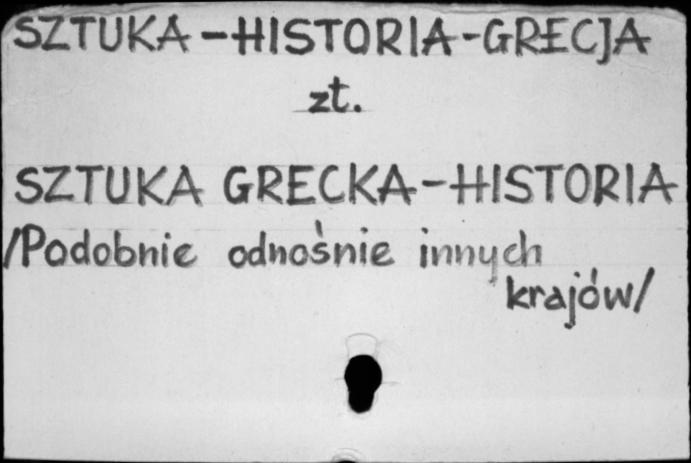 SZTUKA-HISTORIA-GRECJA
zt.
SZTUKA GRECKA-HISTORIA
/Podobnie odnośnie innych
krajów/